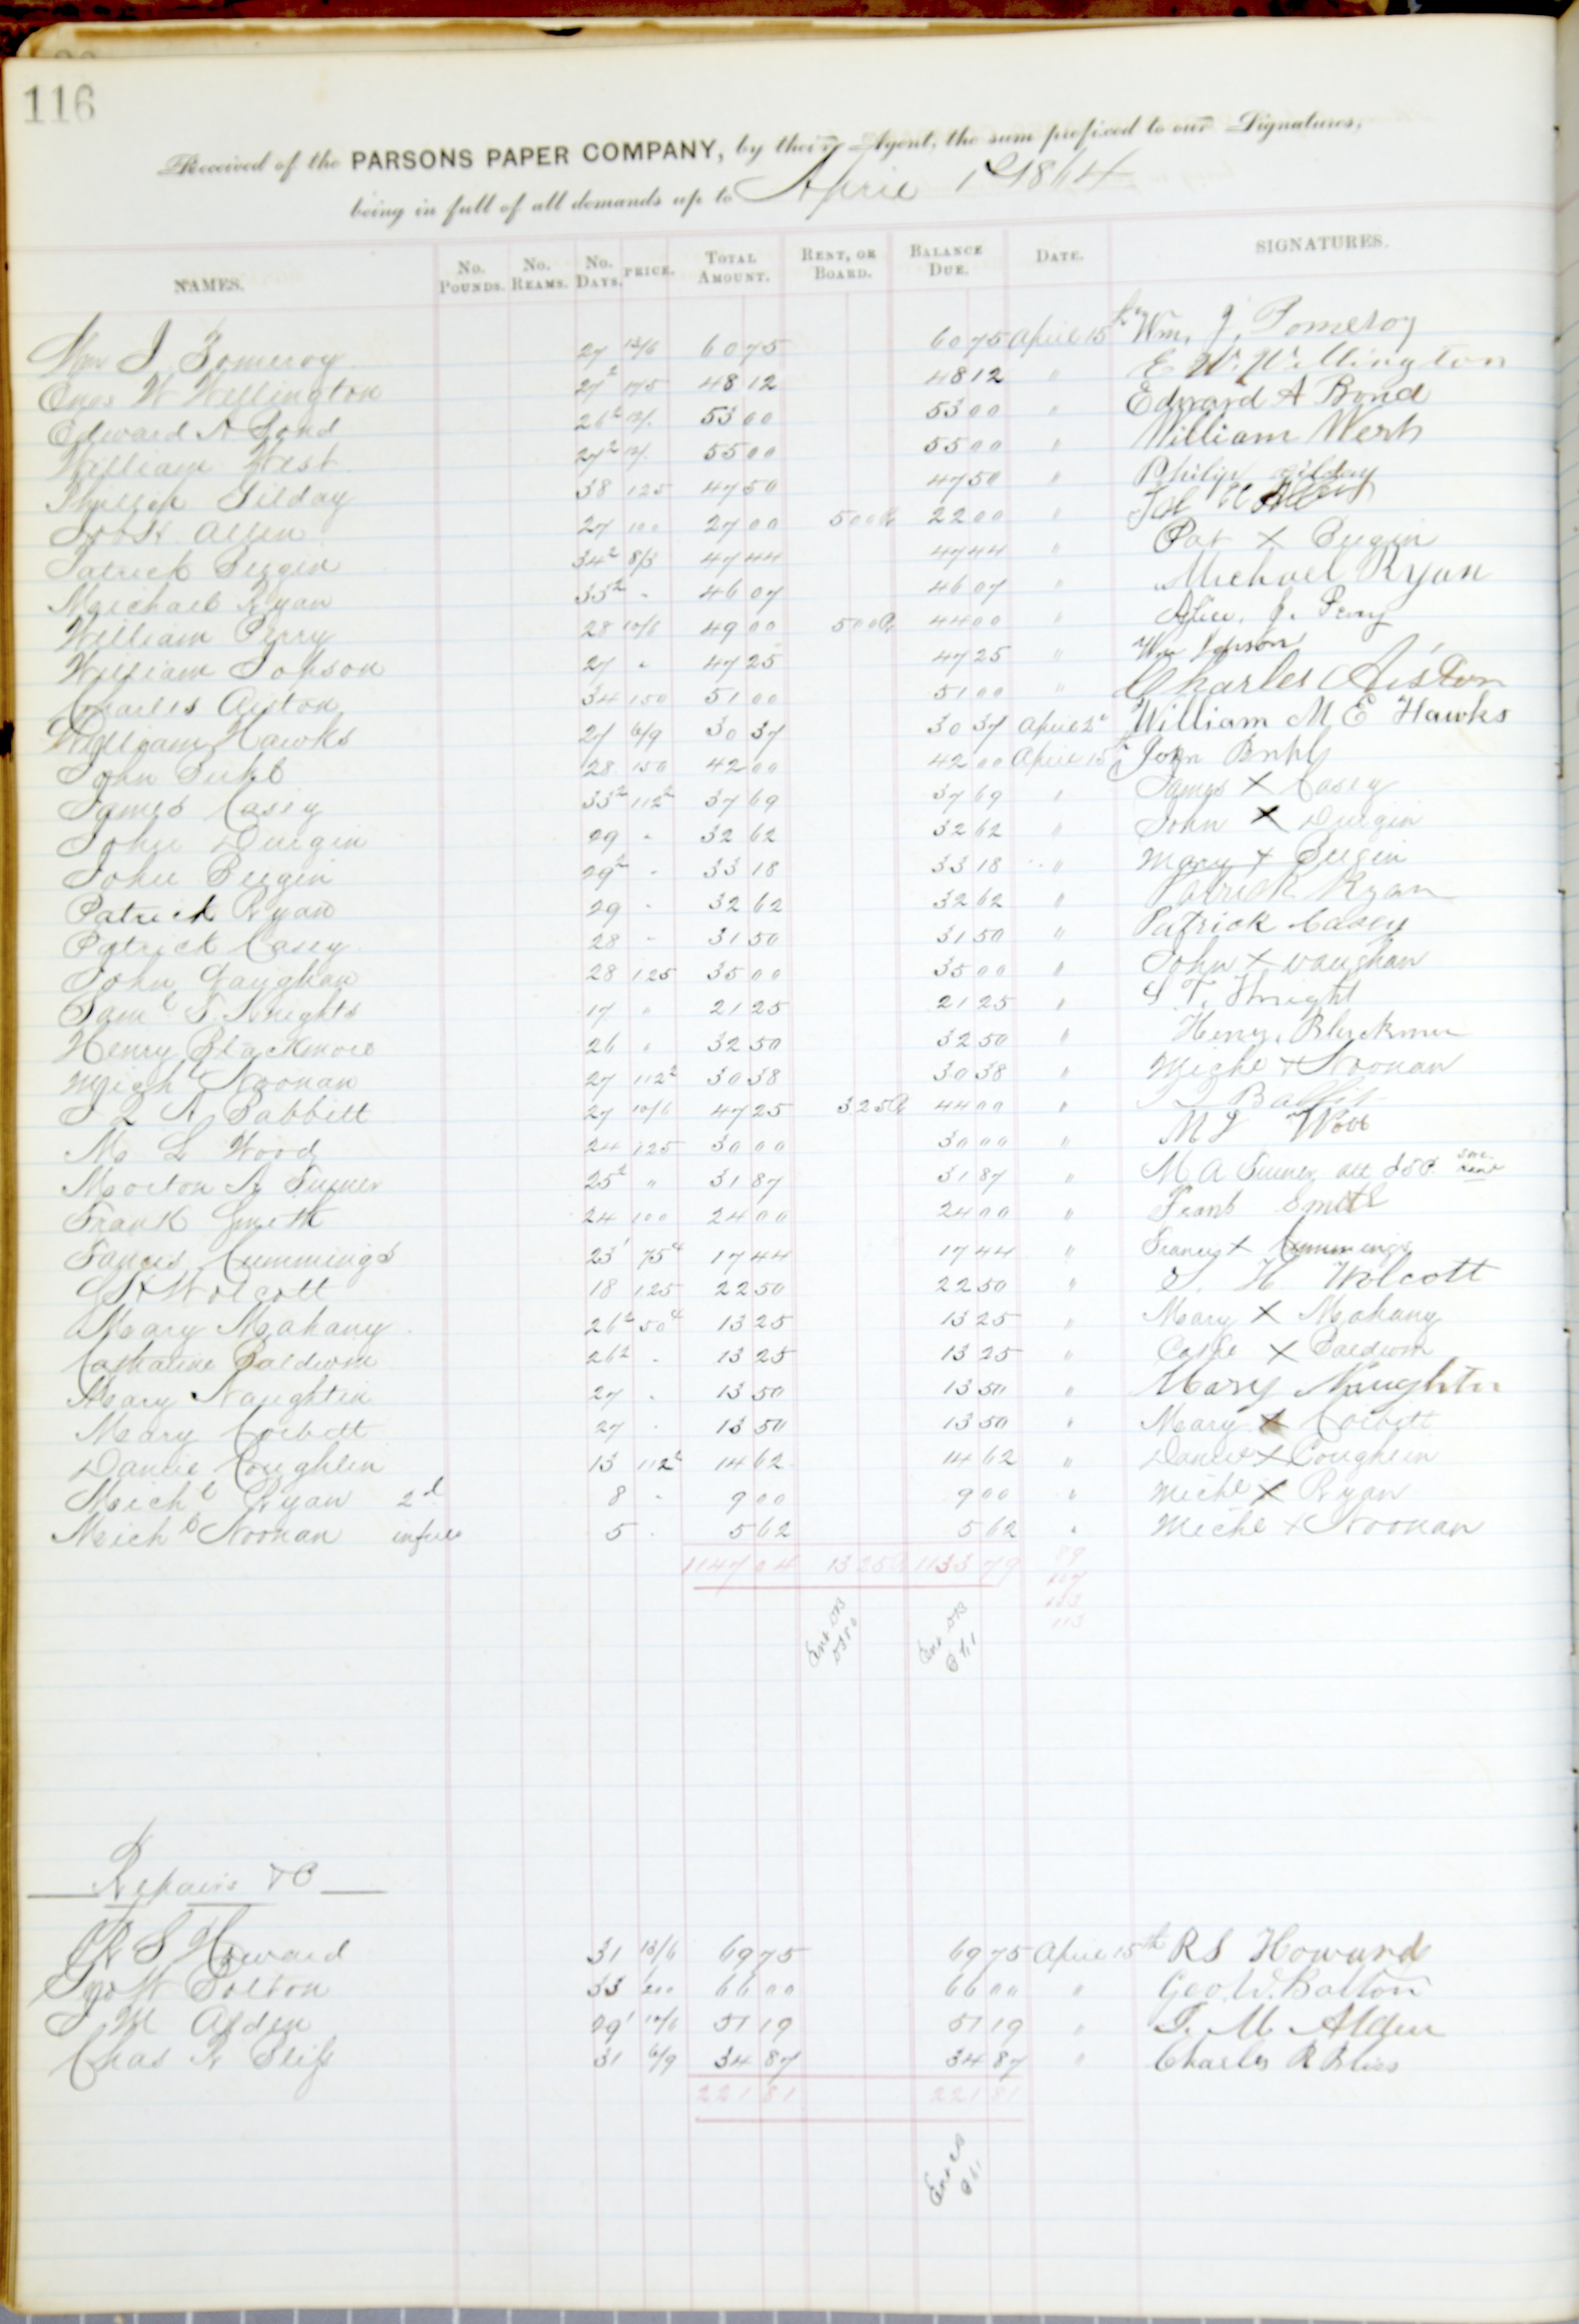 116
Received of the PARSONS PAPER COMPANY, by their Agent, the sum prefixed to our Signatures,
being in full of all demands up to April 1st 1864
NAMES. No. POUNDS. No. REAMS. No. DAYS. PRICE. TOTAL AMOUNT. RENT, OR BOARD. BALANCE DUE. DATE. SIGNATURES.
Wm J Pomeroy 27 13/6 60 75 60 75 April 15th Wm. J. Pomeroy
W Wellington 27 2 175 48 12 48 12 " E W. Wellington
Edward A Bond 26 2 12/. 53 00 53 00 " Edward A Bond
William West 27 2 12/. 55 00 55 00 " William West
Phillip Gilday 38 125 47 50 47 50 " Philip Gilday
Allen 27 100 27 00 5 00 22 00 "
Patrick Bergin 34 2 8/3 47 44 47 44 " Pat X Bergin
Michael Ryan 33 2 " 46 07 46 07 " Michael Ryan
William Perry 28 10/6 49 00 5 00 44 00 " J. Perry
William Jobson 27 " 47 25 47 25 " Wm Jobson
Charles Aiston 34 150 51 00 51 00 " Charles Aiston
William Hawks 27 6/9 30 37 30 37 April 2d William M E Hawks
John Buhl 28 150 42 00 42 00 April 15th John Buhl
James Casey 33 2 112 2 37 69 37 69 " James X Casey
John Durgin 29 " 32 62 32 62 " John X Durgin
John Bergin 29 2 " 33 18 33 18 " Mary X Bergin
Patrick Ryan 29 " 32 62 32 62 " Patrick Ryan
Patrick Casey 28 " 31 50 31 50 " Patrick Casey
John Vaughan 28 125 35 00 35 00 " John X Vaughan
Saml T. Knights 17 " 21 25 21 25 " S T. Knight
Henry Blackmore 26 " 32 50 32 50 " Henry Blackmer
Michl Noonan 27 112 2 30 38 30 38 " Michl X Noonan
Babbitt 27 10/6 47 25 3 25 44 00 " Babbit
M L Wood 24 125 30 00 30 00 " M L Wood
Morton A Turner 25 2 " 31 87 31 87 " M A Turner
Frank Smith 24 100 24 00 24 00 " Frank Smith
Francis Cummings 23 1 75 c 17 44 17 44 " Francis X Cummings
H Wolcott 18 125 22 50 22 50 " H Wolcott
Mary Mahany 26 2 50 c 13 25 13 25 " Mary X Mahany
Catharine Baldwin 26 2 " 13 25 13 25 " Cathe X Baldwin
Mary Naughtin 27 " 13 50 13 50 " Mary Naughtin
Mary Corbett 27 " 13 50 13 50 " Mary X Corbett
Daniel Coughlin 13 112 2 14 62 14 62 " Daniel X Coughlin
Michl Ryan 2d 8 " 9 00 9 00 " Michl X Ryan
Michl Noonan in full 5 " 5 62 5 62 " Michl X Noonan
1147 04 13 25 1133 79
Repairs &c
R S Howard 31 13/6 69 75 69 75 April 15th R S Howard
Geo W Bolton 33 200 66 00 66 00 " Geo. W. Bolton
M Alden 29 1 10/6 51 19 51 19 " M Alden
Chas R Bliss 31 6/9 34 87 34 87 " Charles R Bliss
221 81 221 81